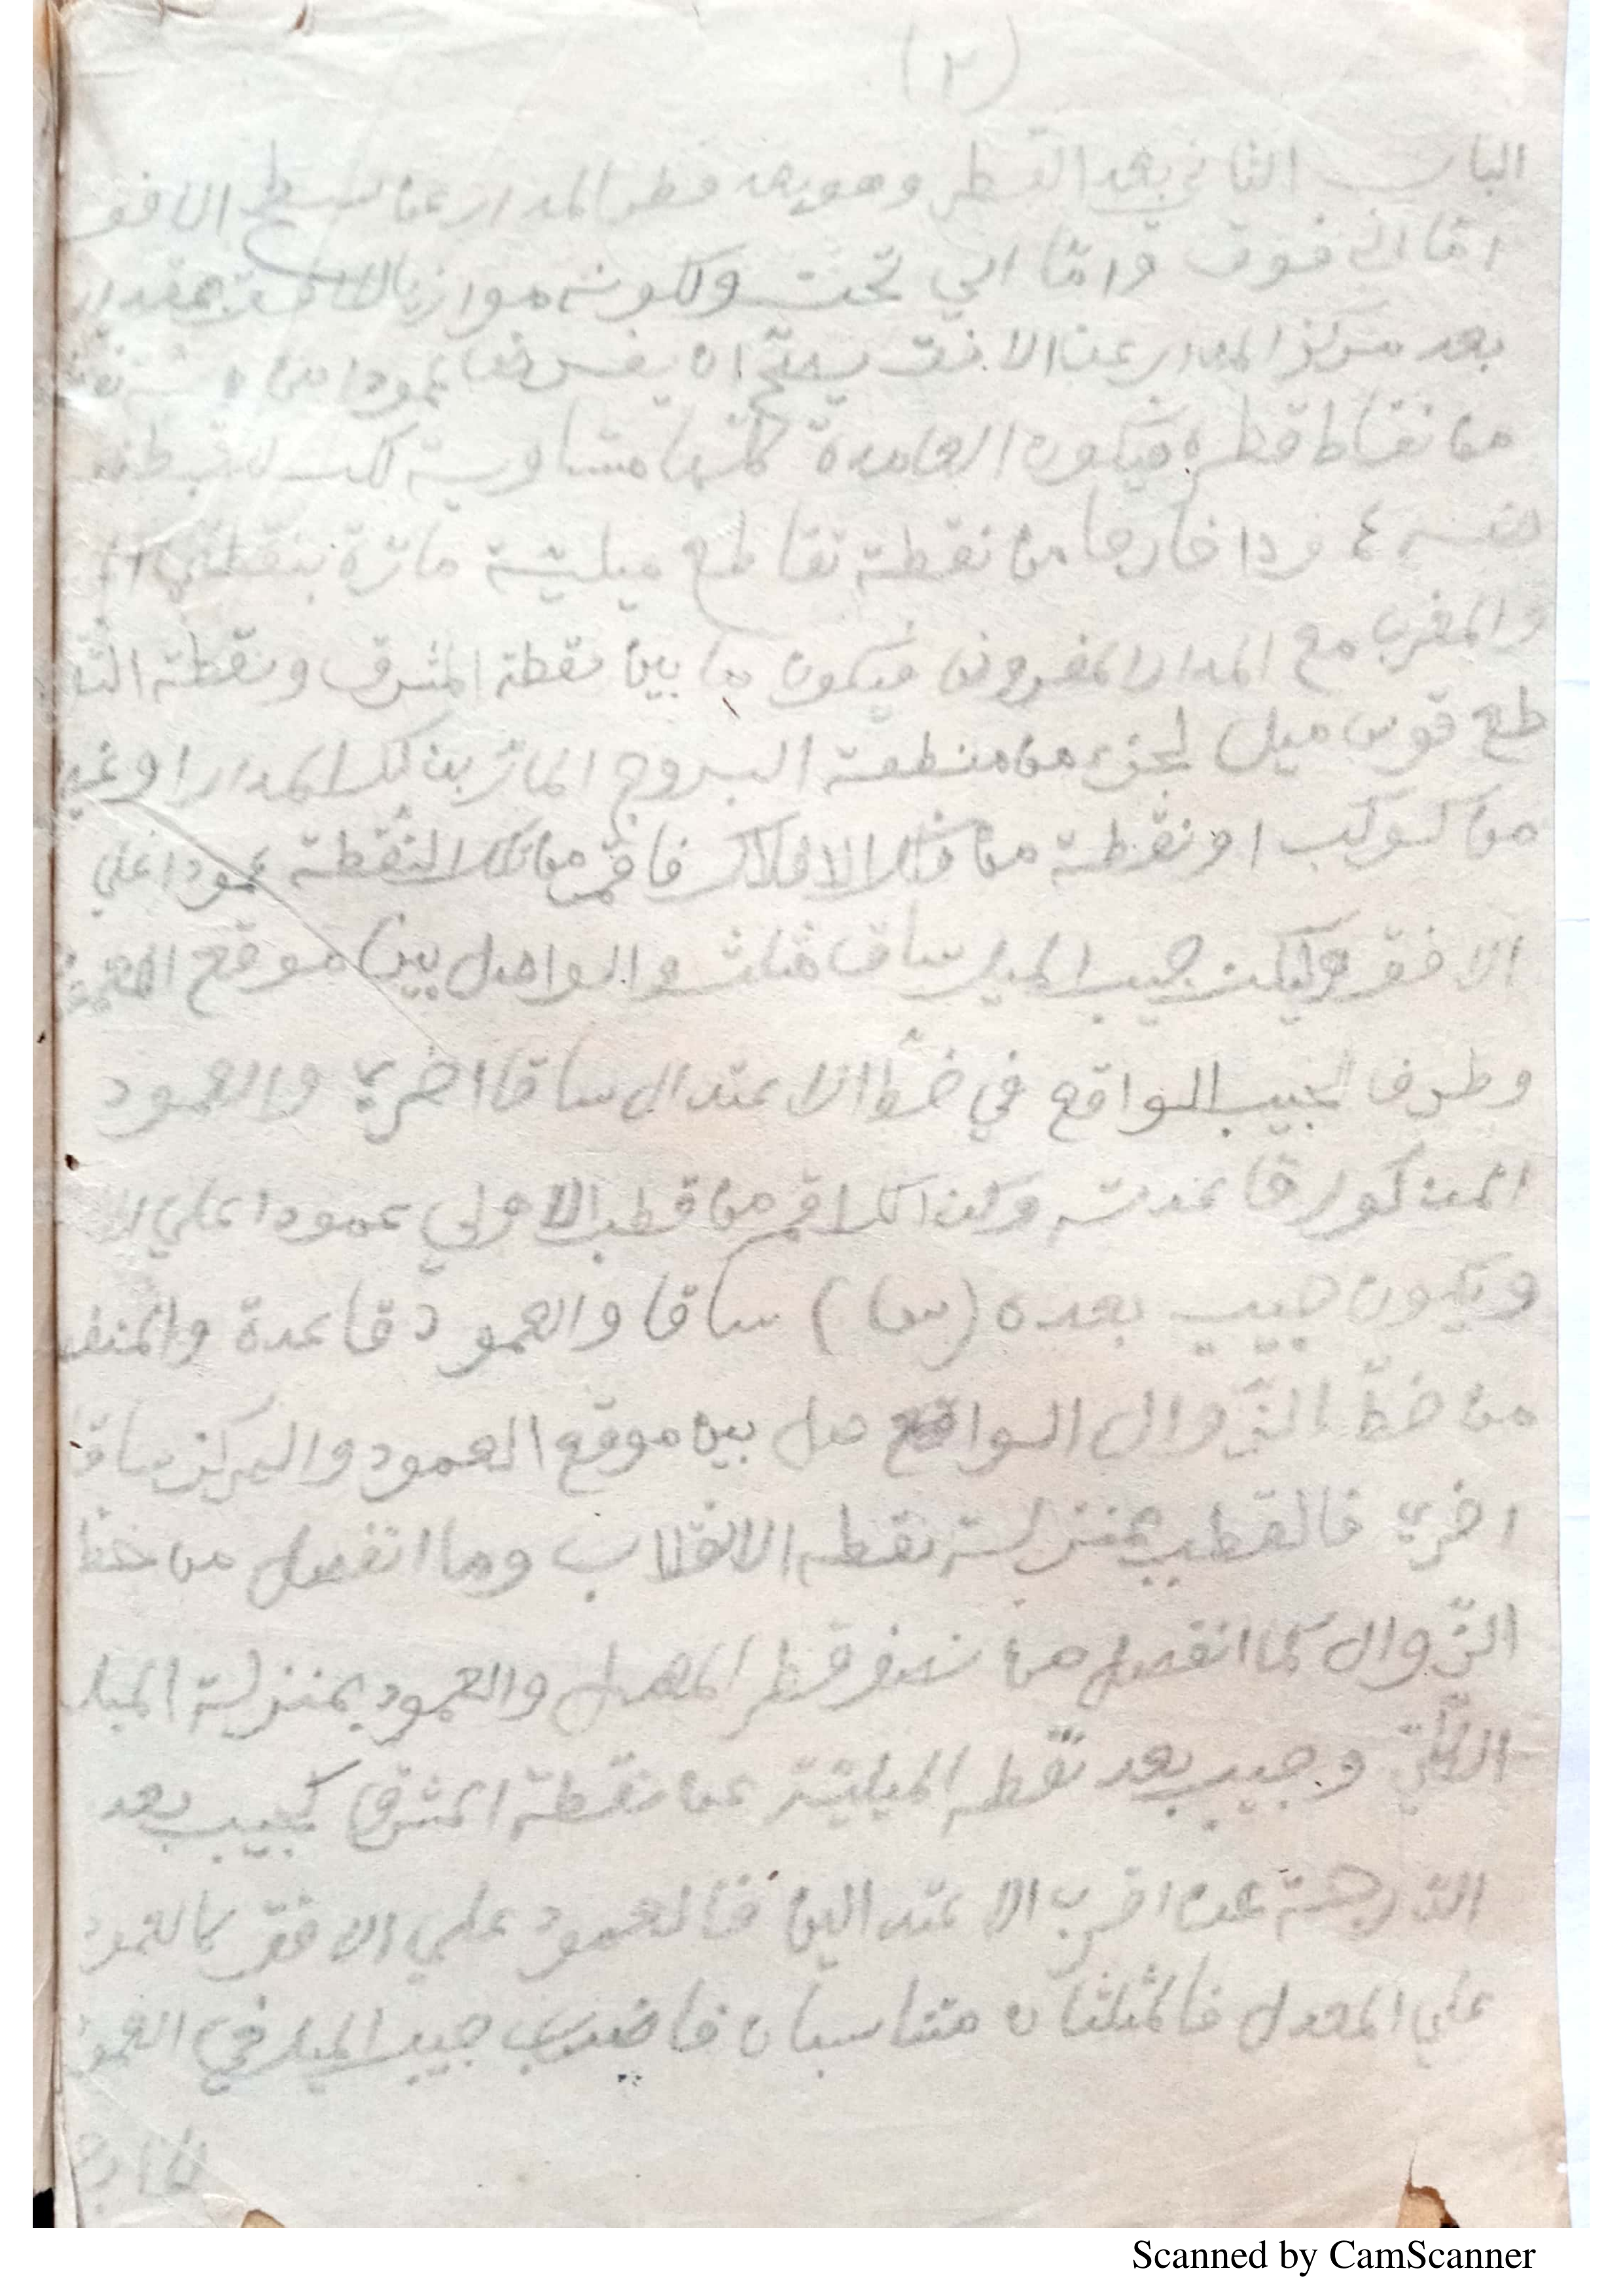 (٢)
الباب الثاني بعد القطر وهو بعد قطر المدار عن سطح الافق
امّا الى فوق وامّا الي تحت ولكونه موازيا بمقدار
بعد مركز المدار عن الافق يصحّ ان يفرض عمودا من
من نقاط قطره فيكون العامدة كلّها متساوية لكن
خارجا من نقطة تقاطع ميليّة مارّة بنقطتي
والمغرب مع المدار المفروض فيكون ما بين نقطة المشرق ونقطة التقا
طع قوس ميل لجزء من منطقة البروج المارّ بذلك المدار او غيره
من كوكب او نقطة من فلك الافلاك فاقم من تلك النقطة عمودا علي
الافق وليكن جيب الميل ساق مثلث والواصل بين موقع العمود
وطرف الجيب الواقع في خطّ الاعتدال ساقا اخرى والعمود
المذكور قاعدته وكذلك اقم من قطب الاولي عمودا علي
ويكون جيب بعده (سا) ساقا والعمود قاعدة والمنفصل
من خطّ الزّوال الواقع بين موقع العمود والمركز ساقا
اخرى فالقطب بمنزلة نقطة الانقلاب وما انفصل من خطّ
الزّوال كما انفصل من نصف قطر المعدل والعمود بمنزلة الميل
الكلّيّ وجيب بعد نقطة الميليّة عن نقطة المشرق كجيب بعد
الدّرجة عن اقرب الاعتدالين فالعمود علي الافق كالعمود
علي المعدل فالمثلثان متناسبان فاضرب جيب الميل في العمود